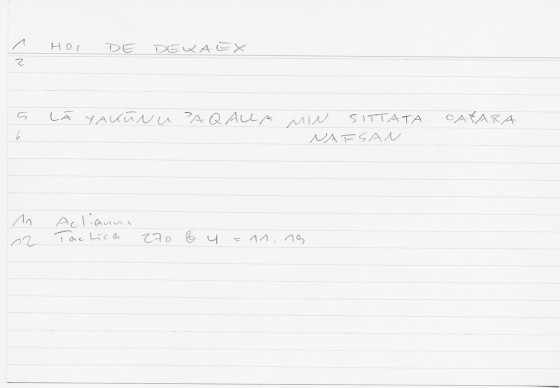 1 HOI DE DEKAEX
2
5 LĀ YAKŪNU ʾAQALLA MIN SITTATA CAŠARA
6 NAFSAN
11 Aelianus
12 Tactica 270 B 4 = 11.19